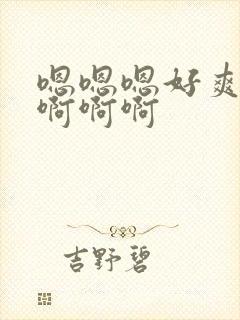 嗯嗯嗯好爽
啊啊啊
吉野碧